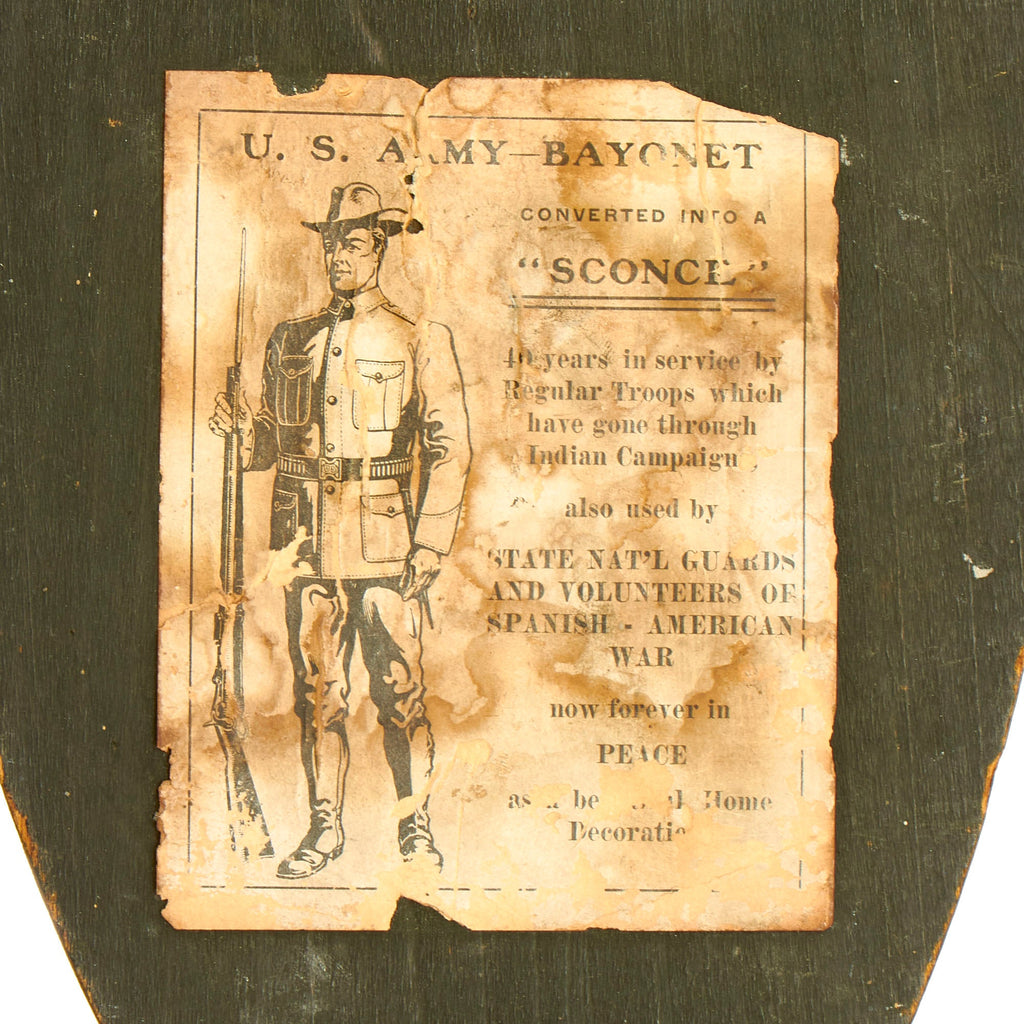 U. S. ARMY—BAYONET
CONVERTED INTO A
"SCONCE"
40 years in service by
Regular Troops which
have gone through
Indian Campaign,
also used by
STATE NAT'L GUARDS
AND VOLUNTEERS OF
SPANISH - AMERICAN
WAR
now forever in
PEACE
as a Home
Decoration